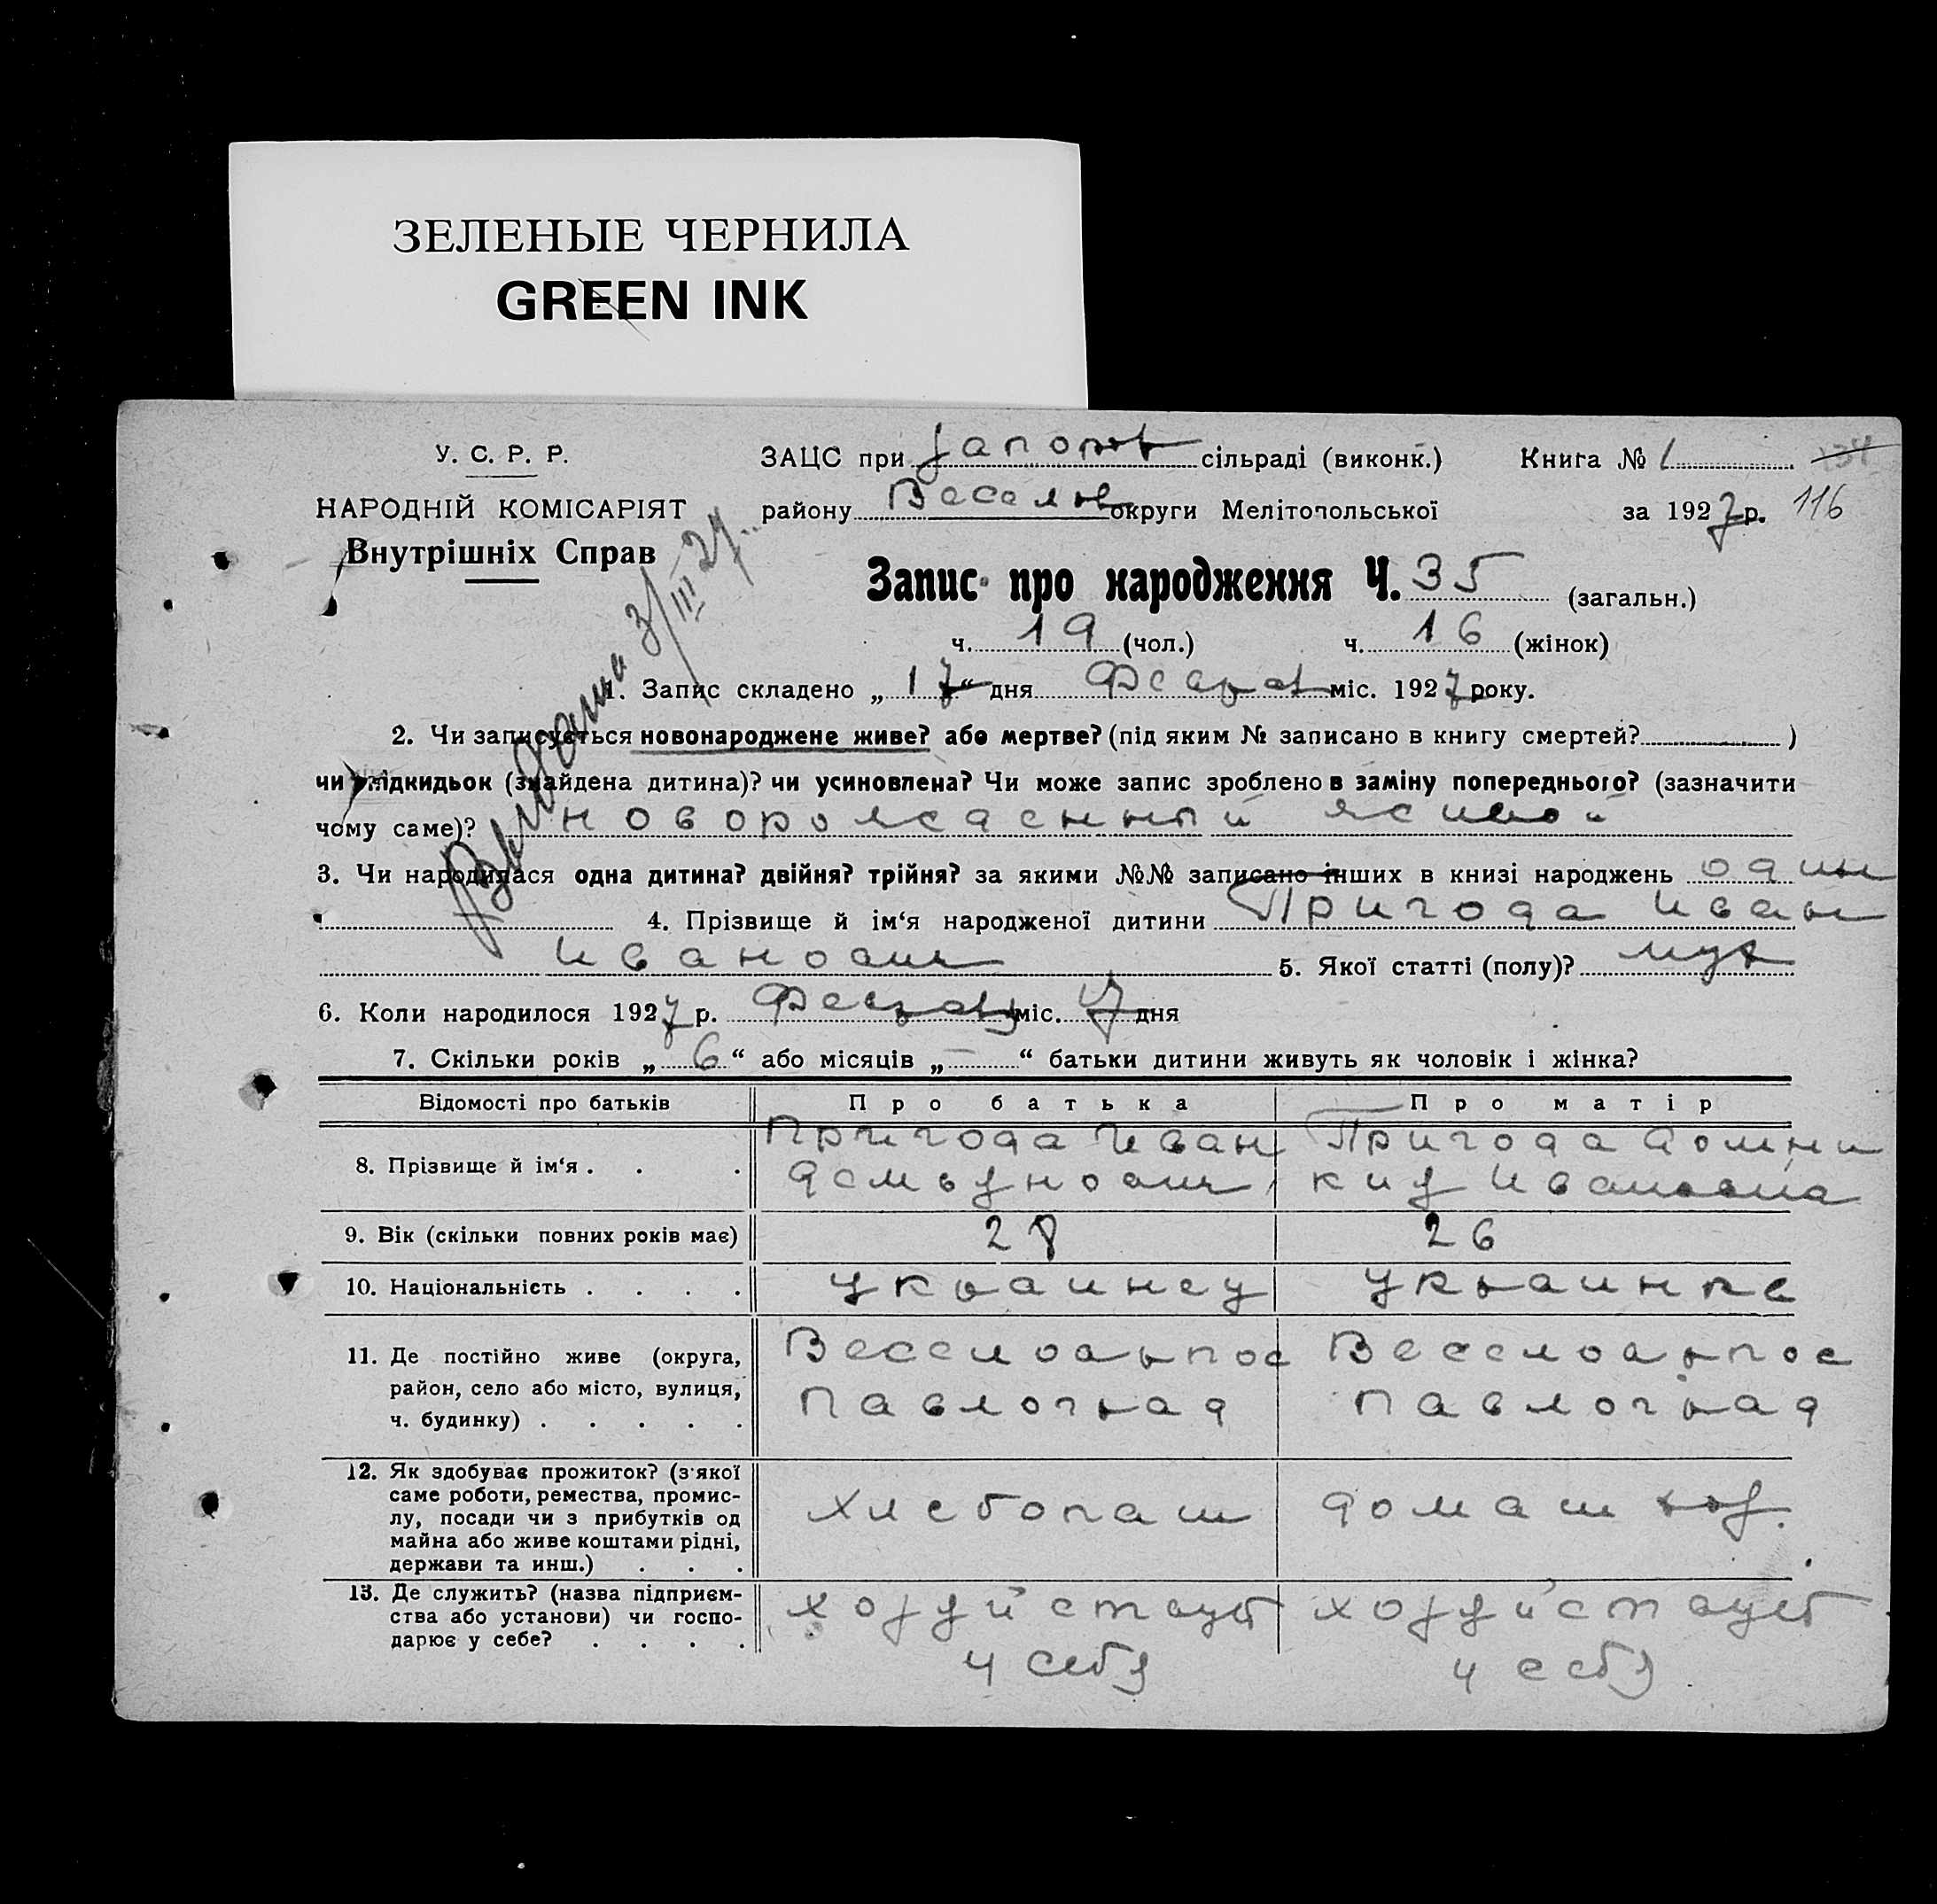 ЗЕЛЕНЫЕ ЧЕРНИЛА
GREEN INK
У. С. Р. Р.
НАРОДНІЙ КОМІСАРІЯТ
Внутрішніх Справ
ЗАЦС при Запорож сільраді (виконк.)
Книга № 1
району Веселов округи Мелітопольської
за 1927 р. 116
Запис про народження Ч. 35 (загальн.)
ч. 19 (чол.) ч. 16 (жінок)
1. Запис складено „17“ дня Феврал міс. 1927 року.
2. Чи записується новонароджене живе? або мертве? (під яким № записано в книгу смертей? )
чи підкидьок (знайдена дитина)? чи усиновлена? Чи може запис зроблено в заміну попереднього? (зазначити
чому саме)? новорожденный живой
3. Чи народилася одна дитина? двійня? трійня? за якими №№ записано інших в книзі народжень один
4. Прізвище й ім‘я народженої дитини Пригода Иван
Иванович 5. Якої статті (полу)? муж
6. Коли народилося 1927 р. Феврал міс. 17 дня
7. Скільки років „6“ або місяців „—“ батьки дитини живуть як чоловік і жінка?
Відомості про батьків Про батька Про матір
8. Прізвище й ім‘я . . .
Пригода Иван
Демьянович
Пригода Домни
кия Ивановна
9. Вік (скільки повних років має) 28 26
10. Національність . . . . украинец украинка
11. Де постійно живе (округа,
район, село або місто, вулиця,
ч. будинку) . . . . .
Павлоград
Павлоград
12. Як здобуває прожиток? (з якої
саме роботи, ремества, промис-
лу, посади чи з прибутків од
майна або живе коштами рідні,
держави та инш.) . . .
хлебопаш
домаш хоз.
13. Де служить? (назва підприєм-
ства або установи) чи госпо-
дарює у себе? . . . .
хозяйствует
у себя
хозяйствует
у себя